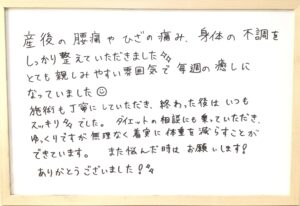 産後の腰痛やひざの痛み、身体の不調を
しっかり整えていただきました
とても親しみやすい雰囲気で毎週の癒しに
なっていました
施術も丁寧にしていただき、終わった後はいつも
スッキリでした。ダイエットの相談にも乗っていただき、
ゆっくりですが無理なく着実に体重を減らすことが
できています。また悩んだ時はお願いします!
ありがとうございました!